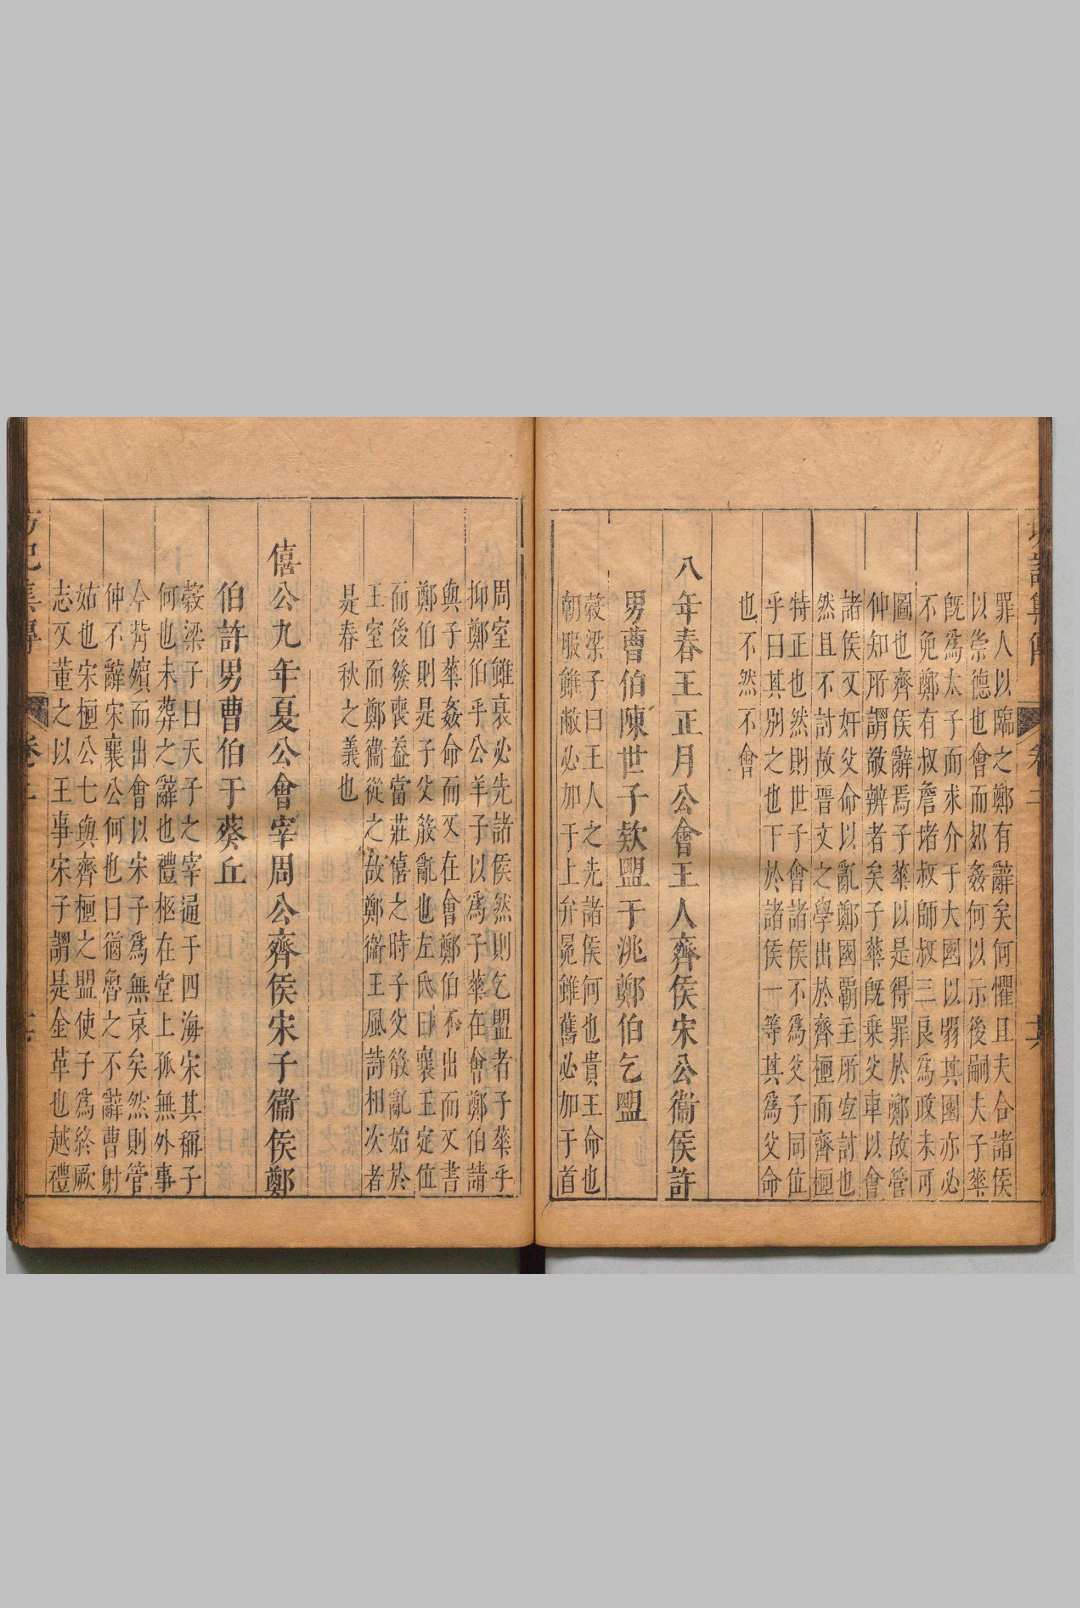 罪人以臨之鄭有辭矣何懼且夫合諸侯
以崇德也會而列姦何以示後嗣夫子華
旣爲太子而求介于大國以弱其國亦必
不免鄭有叔詹堵叔師叔三良爲政未可
圖也齊侯辭焉子華以是得罪於鄭故管
仲知所謂敬辨者矣子華旣乗父車以會
諸侯又奸父命以亂鄭國覇主所宜討也
然且不討故晋文之學出於齊桓而齊桓
特正也然則世子會諸侯不爲父子同位
乎曰其別之也下於諸侯一等其爲父命
也不然不會
八年春王正月公會王人齊侯宋公衞侯許
男曹伯陳世子欵盟于洮鄭伯乞盟
榖梁子曰王人之先諸侯何也貴王命也
朝服雖敝必加于上弁冕雖舊必加于首
周室雖衰必先諸侯然則乞盟者子華乎
抑鄭伯乎公羊子以爲子華在會鄭伯請
與子華姦命而又在會鄭伯不出而又書
鄭伯則是子父殽亂也左氏曰襄王定位
而後發喪葢當莊僖之時子父殽亂始於
王室而鄭衞從之故鄭衞王風詩相次者
是春秋之義也
僖公九年夏公會宰周公齊侯宋子衞侯鄭
伯許男曹伯于葵丘
榖梁子曰天子之宰通于四海宋其稱子
何也未葬之辭也禮柩在堂上孤無外事
今背殯而出會以宋子爲無哀矣然則管
仲不辭宋襄公何也曰猶魯之不辭曹射
姑也宋桓公七與齊桓之盟使子爲終厥
志又董之以王事宋子謂是金革也越禮